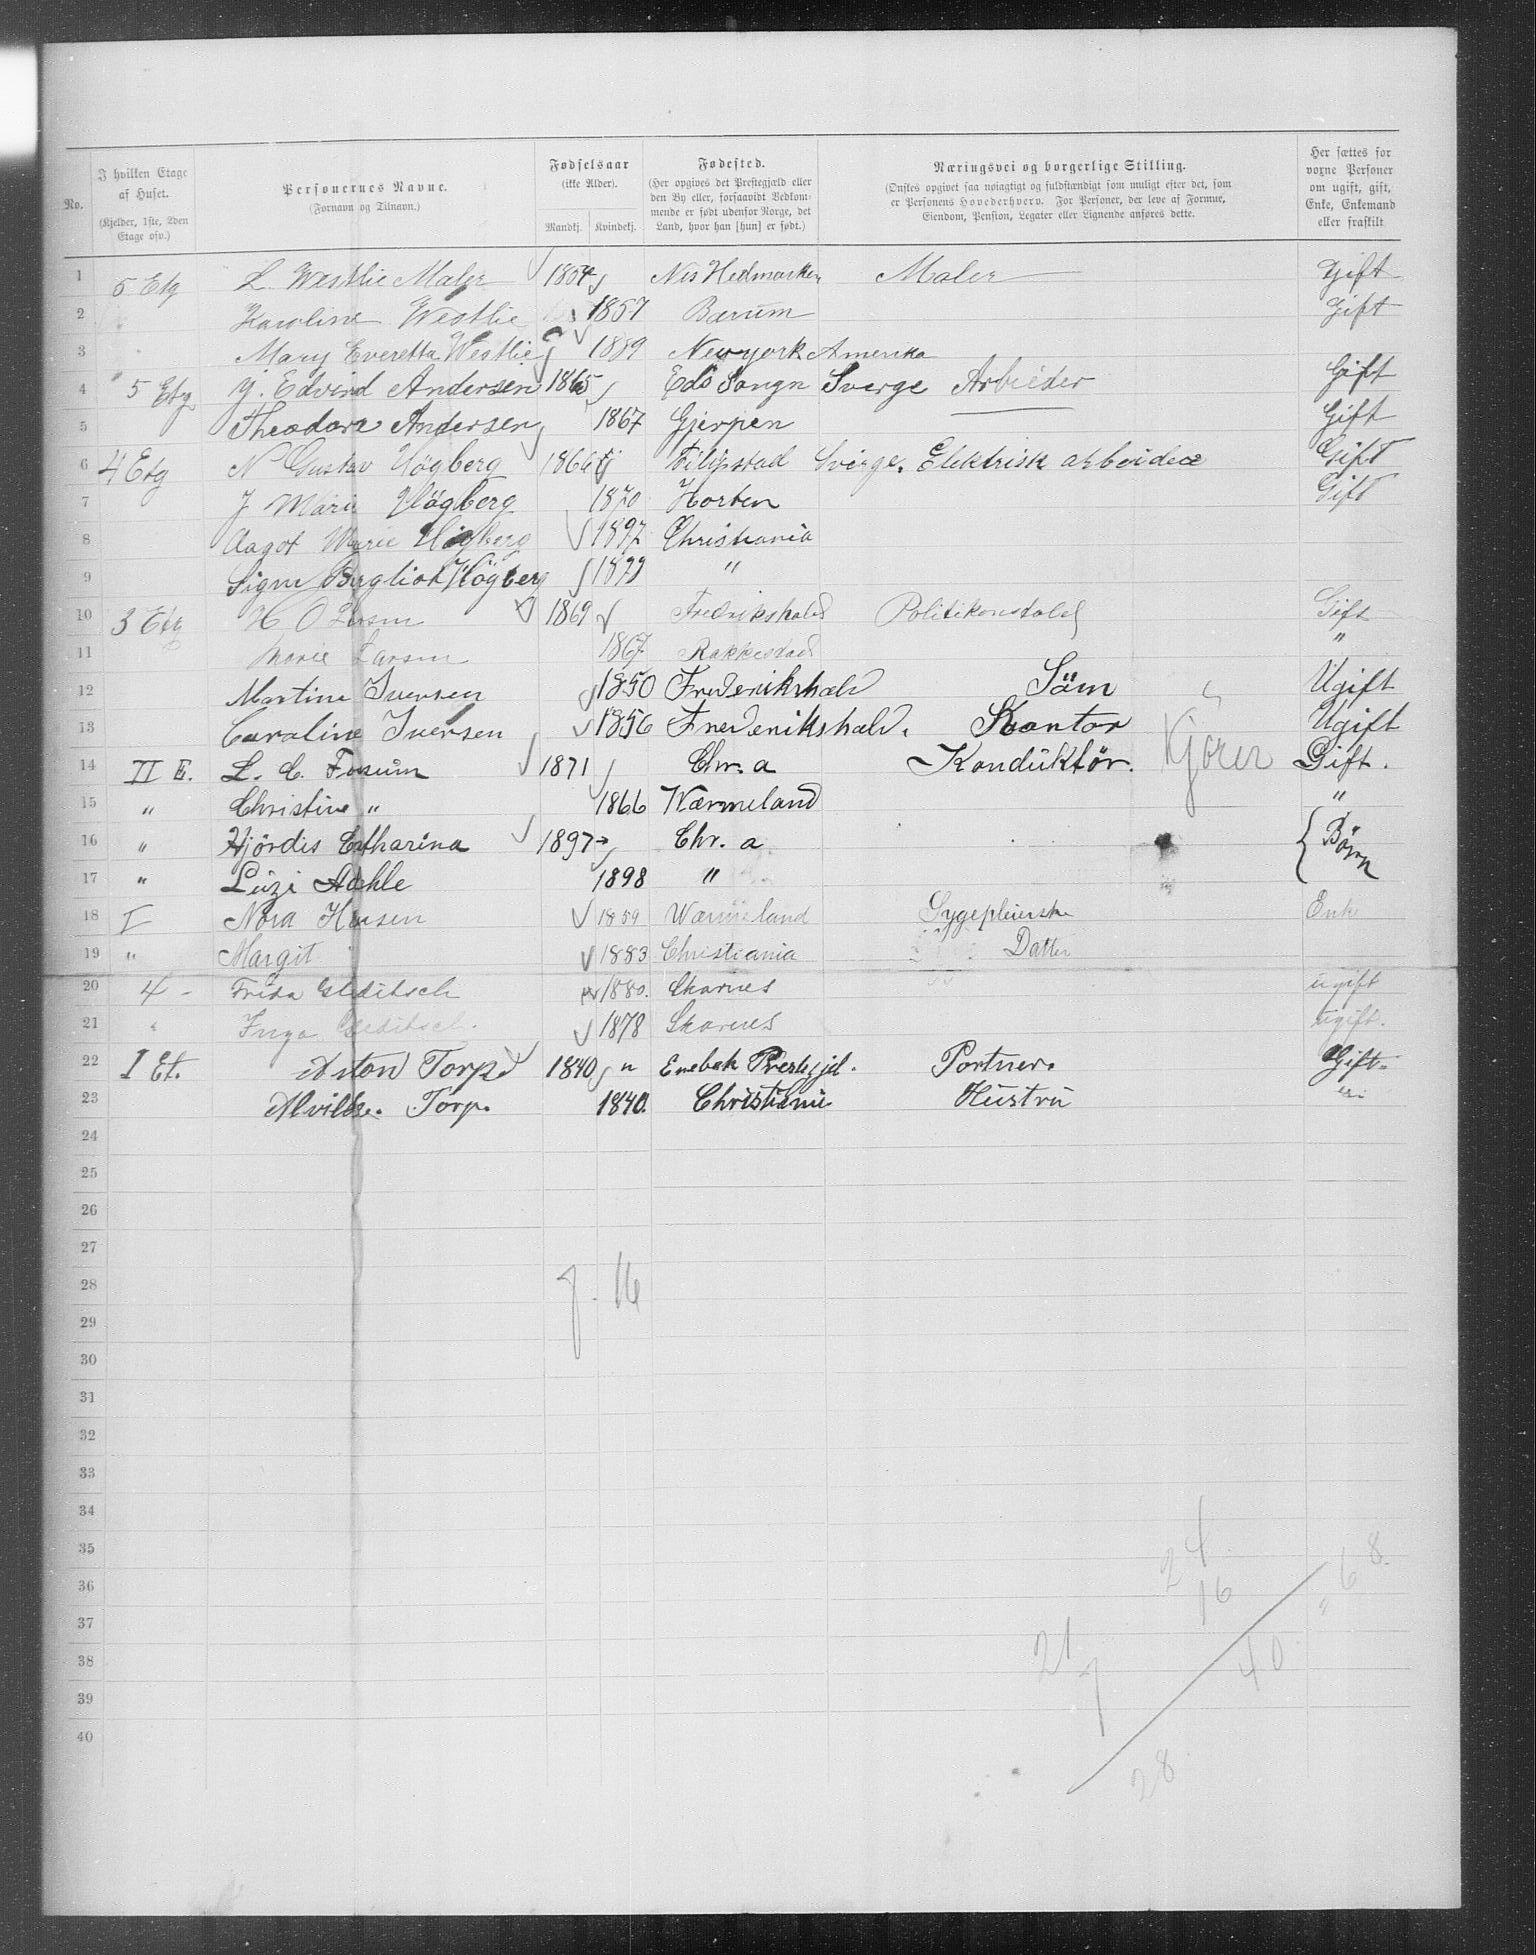 No.
I hvilken Etage af Huset. (Kjelder, 1ste, 2den Etage osv.)
Personernes Navne. (Fornavn og Tilnavn.)
Fødselsaar (ikke Alder). Mandkj. Kvindekj.
Fødested. (Her opgives det Prestegjæld eller den By eller, forsaavidt Vedkommende er født udenfor Norge, det Land, hvor han [hun] er født.)
Næringsvei og borgerlige Stilling. (Ønskes opgivet saa nøiagtigt og fuldstændigt som muligt efter det, som er Personens Hovederhverv. For Personer, der leve af Formue, Eiendom, Pension, Legater eller Lignende anføres dette.
Her sættes for voxne Personer om ugift, gift, Enke, Enkemand eller fraskilt
1 5 Etg L. Westlie Maler 1854 Nes Hedmarken Maler Gift
2 Karoline Westlie 1857 Bærum Gift
3 Mary Everetta Westlie 1889 Newyork Amerika
4 5 Etg J. Edvind Andersen 1865 Eds Songn Sverge Arbieder Gift
5 Theodora Andersen 1867 Gjerpen Gift
6 4 Etg N Gustav Högberg 1866 Filipstad Sverge. Elektrisk arbeider Gift
7 J Marie Högberg 1870 Horten Gift
8 Aagot Marie Högberg 1897 Christiania
9 Signe Bergliot Högberg 1899 "
10 3 Etg H O Larsen 1869 Fredrikshald Politikonstabel Gift
11 Marie Larsen 1867 Rakkestad "
12 Martine Iversen 1850 Frederikshald Söm Ugift
13 Caroline Iversen 1856 Frederikshald. Kontor Ugift
14 II E. L. C. Fossum 1871 Chr. a Konduktör. Kjører Gift.
15 " Christine " 1866 Værmeland "
16 " Hjördis Catharina 1897 Chr. a { Börn
17 " Luzi 1898 "
18 I Nora Hansen 1859 Wærmeland Sygepleierske Enke
19 " Margit " 1883 Christiania Datter
20 4 - Frida Gleditsch 1880. Skarnes ugift
21 " Inga Gleditsch. 1878 Skarnes ugift.
22 I Et. Anton Torp 1840 " Enebak Prestegjd. Portner. Gift
23 Alvilde. Torp. 1840. Christiania Hustru "
24
25
26
27
28 7. 16
29
30
31
32
33
34
35 24 8.
36 16 6 "
37 21
38 7 40
39
40
28